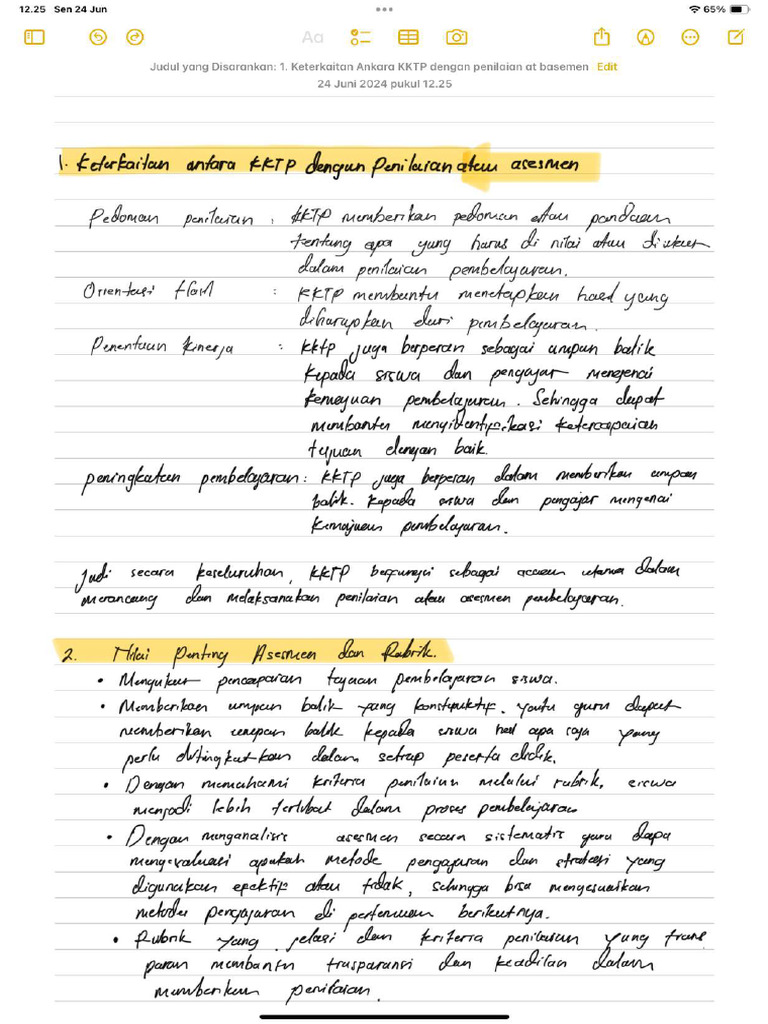 12.25 Sen 24 Jun
65%
Aa
Judul yang Disarankan: 1. Keterkaitan Ankara KKTP dengan penilaian at basemen Edit
24 Juni 2024 pukul 12.25
1. Keterkaitan antara KKTP dengan Penilaian atau asesmen
Pedoman penilaian : KKTP memberikan pedoman atau panduan
tentang apa yang harus di nilai atau di ukur
dalam penilaian pembelajaran.
Orientasi Hasil : KKTP membantu menetapkan hasil yang
diharapkan dari pembelajaran.
Penentuan Kinerja : KKTP juga berperan sebagai umpan balik
kepada siswa dan pengajar mengenai
kemajuan pembelajaran. Sehingga dapat
membantu mengidentifikasi ketercapaian
tujuan dengan baik.
peningkatan pembelajaran : KKTP juga berperan dalam memberikan umpan
balik kepada siswa dan pengajar mengenai
kemajuan pembelajaran.
Jadi secara keseluruhan, KKTP berfungsi sebagai acuan utama dalam
merancang dan melaksanakan penilaian atau asesmen pembelajaran.
2. Nilai Penting Asesmen dan Rubrik.
• Mengukur pencapaian tujuan pembelajaran siswa.
• Memberikan umpan balik yang konstruktif. yaitu guru dapat
memberikan umpan balik kepada siswa hal apa saja yang
perlu ditingkatkan dalam setiap peserta didik.
• Dengan memahami kriteria penilaian melalui rubrik, siswa
menjadi lebih terlibat dalam proses pembelajaran
• Dengan menganalisis asesmen secara sistematis guru dapa
mengevaluasi apakah metode pengajaran dan strategi yang
digunakan efektif atau tidak, sehingga bisa menyesuaikan
metode pengajaran di pertemuan berikutnya.
• Rubrik yang jelas dan kriteria penilaian yang trans
paran membantu trasparansi dan keadilan dalam
memberikan penilaian.